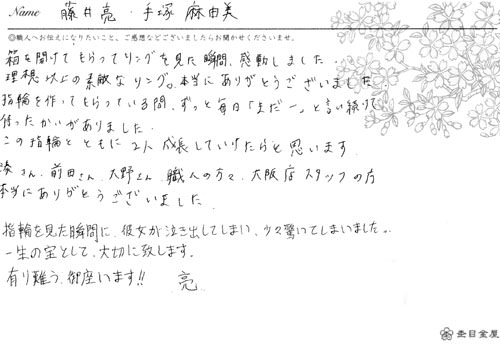 Name 藤井亮・手塚 麻由美
◎職人へお伝えになりたいこと、ご感想などございましたらお聞かせくださいませ。
箱を開けてもらってリングを見た瞬間、感動しました。
理想以上の素敵なリング。本当にありがとうございました。
指輪を作ってもらっている間、ずっと毎日「まだー」と言い続けて
待ったかいがありました。
この指輪とともに2人成長していけたらと思います。
湊さん、前田さん、大野さん、職人の方々、大阪店スタッフの方
本当にありがとうございました。
指輪を見た瞬間に、彼女が泣き出してしまい、少々驚いてしまいました。
一生の宝として、大切に致します。
有り難う御座います!! 亮
杢目金屋